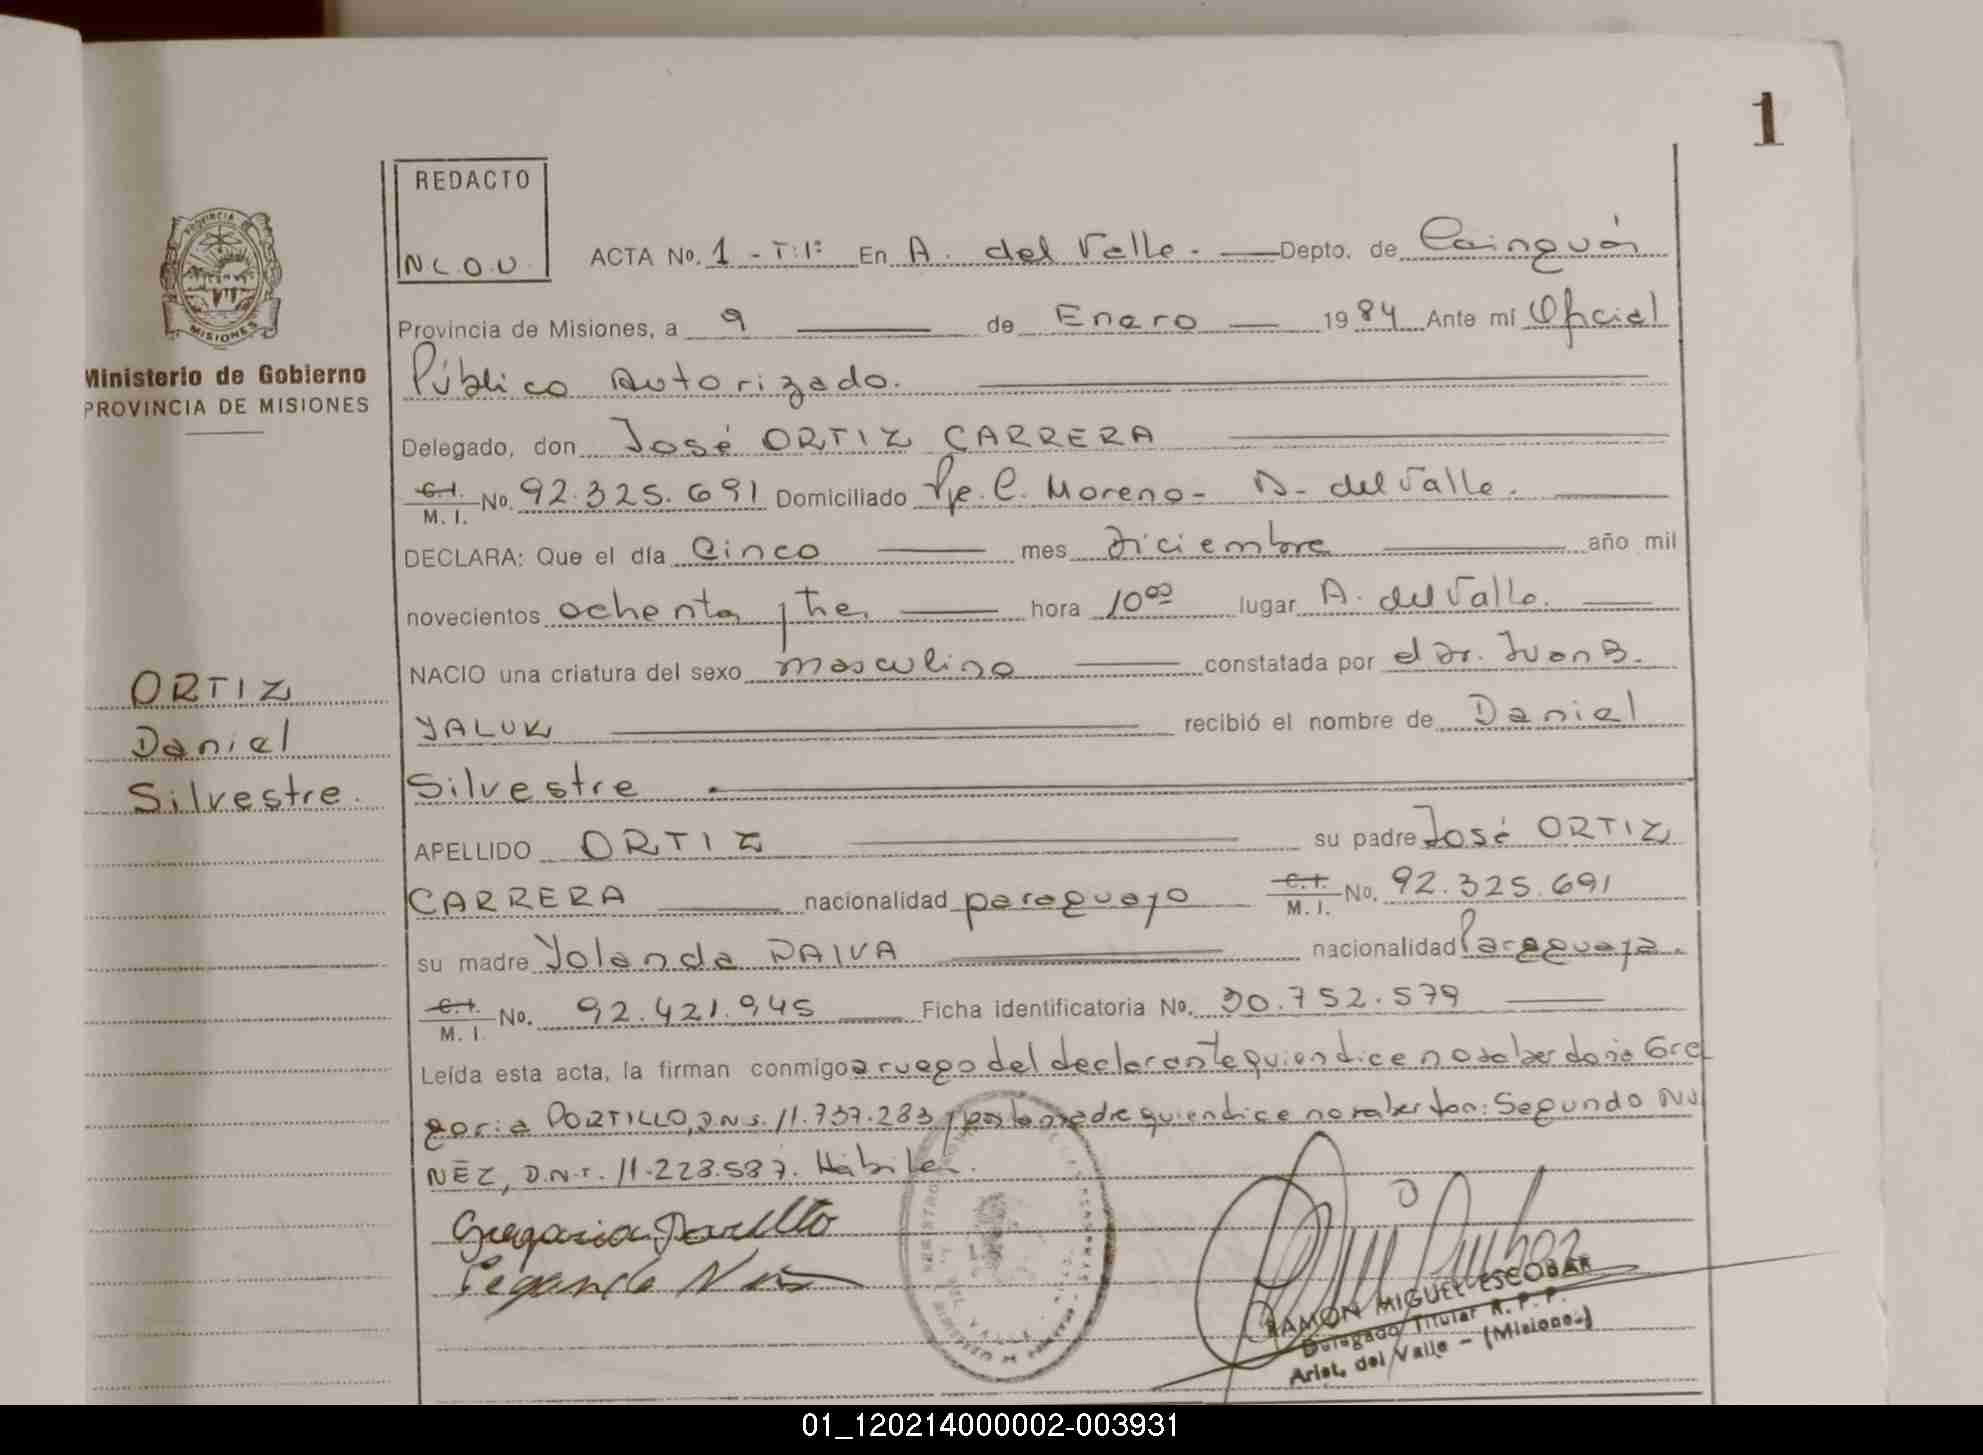 1
REDACTO
N L. O. U.
PROVINCIA DE
MISIONES
Ministerio de Gobierno
PROVINCIA DE MISIONES
ACTA No. 1 - T: 1º En A. del Valle. - Depto. de Cainguás
Provincia de Misiones, a 9 de Enero 1984 Ante mí Oficial
Público Autorizado.
Delegado, don José ORTIZ CARRERA
C. I. M. I. No. 92.325.691 Domiciliado Pje. C. Moreno - A. del Valle.
DECLARA: Que el día Cinco mes diciembre año mil
novecientos ochenta y tres hora 10 00 lugar A. del Valle.
NACIO una criatura del sexo masculino constatada por el Dr. Juan B.
YALUK recibió el nombre de Daniel
Silvestre
APELLIDO ORTIZ su padre José ORTIZ
CARRERA nacionalidad paraguayo C. I. M. I. No. 92.325.691
su madre Yolanda PAIVA nacionalidad Paraguaya.
C. I. M. I. No. 92.421.945 Ficha identificatoria No. 30.752.579
Leída esta acta, la firman conmigo a ruego del declarante quien dice no saber doña Gre
goria PORTILLO, D.N.I. 11.737.283 y por la madre quien dice no saber don: Segundo NU
ÑEZ, D.N.I. 11.223.587. Hábiles.
ORTIZ
Daniel
Silvestre.
Gregoria Portillo
Segundo Nuñez
RAMON MIGUEL ESCOBAR
Delegado Titular R. P. P.
Arist. del Valle - (Misiones)
01_120214000002-003931